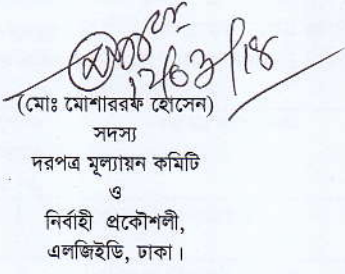 ১২/০৩/১৪
(মোঃ মোশাররফ হোসেন)
সদস্য
দরপত্র মূল্যায়ন কমিটি
ও
নির্বাহী প্রকৌশলী,
এলজিইডি, ঢাকা।